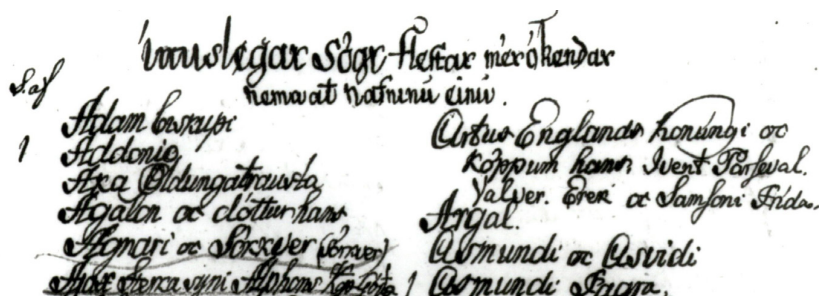 ímuslegar Sögr flestar mer ókendar
nema at Nafninu einu.
S. af
Adam byskupi
1 Addonio
Axa Öldungatrausta
Agalon oc dóttur hans
Agnari oc Sörkver (Sörkver)
Ajax sterka syni Alphons
Artus Englands konúngi oc
köppum hans Ivent Parseval.
Valver. Erek oc Samsoni Frida
Argal.
Asmundi oc Asvidi
1 Asmundi Fagra.